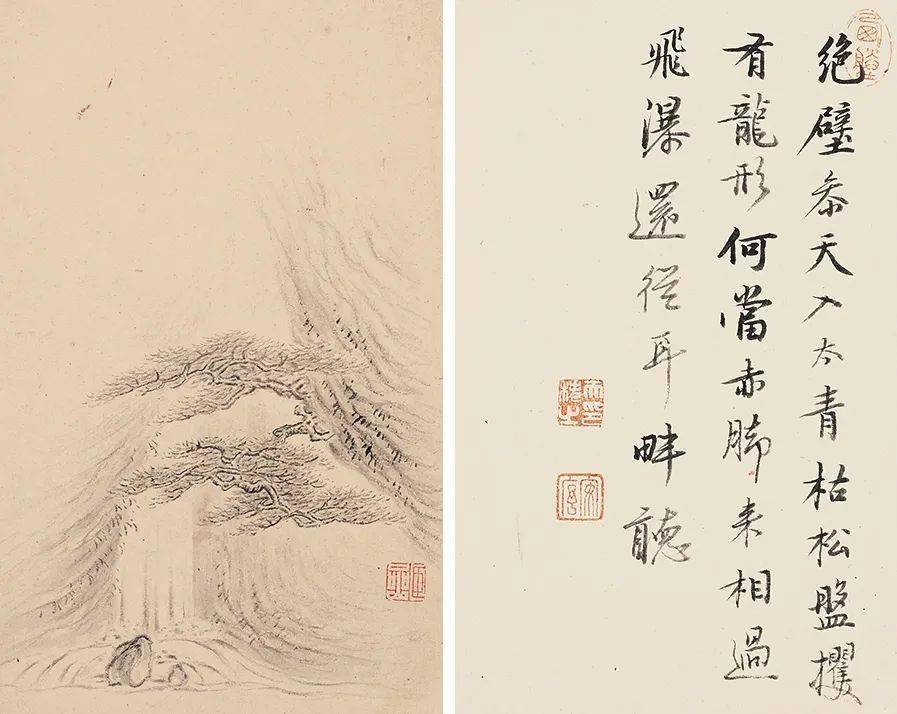 絶壁叅天入太青枯松盤攫
有龍形何當赤腳来相過
飛瀑還從耳畔聽